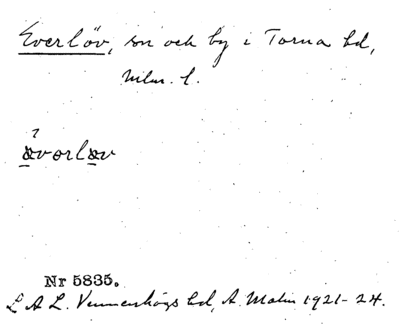 Everlöv, sn och by i Torna hd,
Mlm. l.
ævorlæv
Nr 5835.
L A L. Vemmenhögs hd, A. Malm 1921-24.